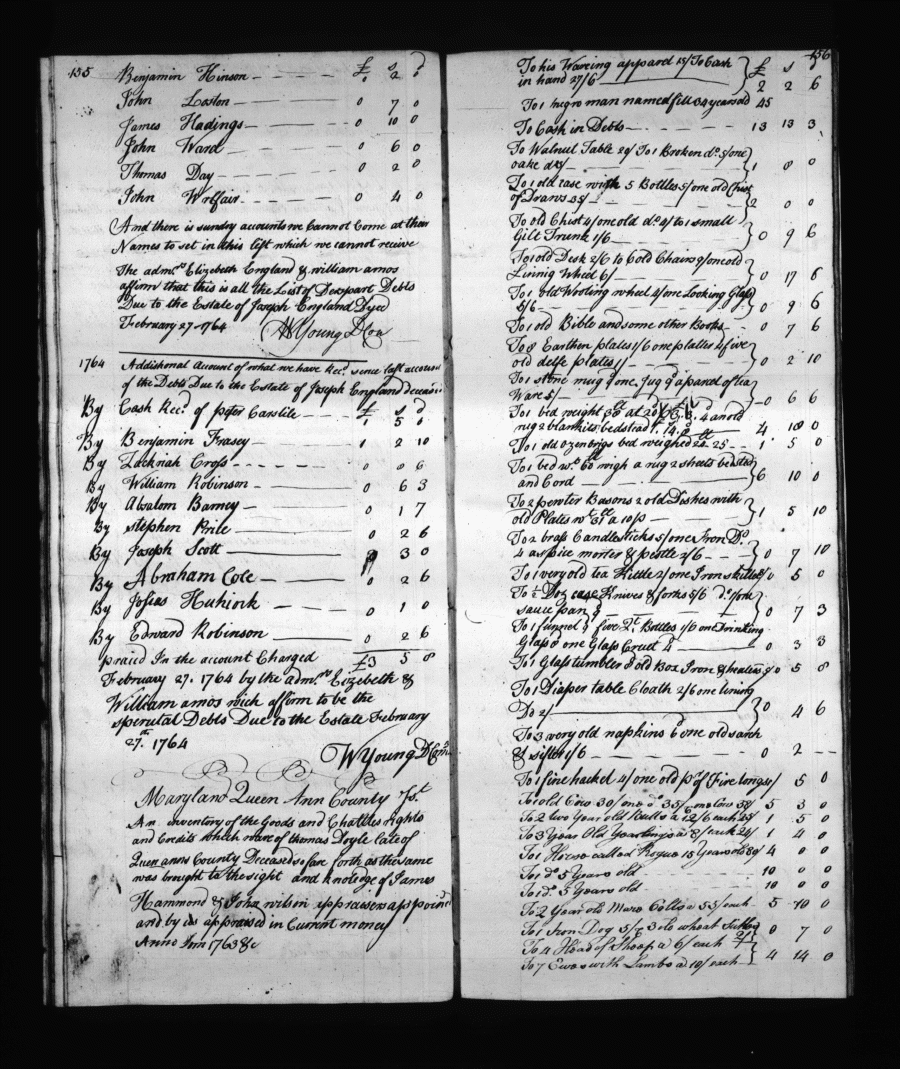 155
£ s d
Benjamin Hinson 1 2 0
John Loston 0 7 0
James Hadings 0 10 0
John Ward 0 6 0
Thomas Day 0 2 0
John 0 4 0
And there is sunday accounts we Cannot Come at their
Names to set in this list which we cannot receive
The admrs Elizebeth England & william amos
affirm that this is all the List of Desspart Debts
Due to the Estate of Joseph England Dyed
February 27. 1764
W Young D Com
1764 Addishonal Account of what we have Recd since last account
of the Debts Due to the Estate of Joseph England deceasd
£ s d
By Cash Recd of peter Carslile 1 5 0
By Benjamin Frasey 1 2 10
By Zackriah Cross 0 0 6
By William Robinson 0 6 3
By Absalom Barney 0 1 7
By Stephen Prile 0 2 6
By Joseph Scott 3 0
By Abraham Cole 0 2 6
By Josias 0 1 0
By Edward Robinson 0 2 6
praied In the account Charged £3 5 8
February 27. 1764 by the admrs Eizebeth &
William amos wich affirm to be the
sperutal Debts Due to the Estate February
27th 1764
W Young D Com
Maryland Queen Ann County Jst
An inventory of the Goods and Chattles rights
and Cordits which ware of thomas Doyle late of
Queen anns County Deceased so fare forth as the same
was brought to the sight and knoledge of James
Hammond & John wilson appraisers
and by us appraised in Current money
Anno Dom 1763 &c
156
£ s d
To his Wareing apparel 15/ To Cash
in hand 27/6 2 2 6
To 1 negro man named fill 34 years old 45
To Cash in Debts 13 13 3
To Walnut Table 20/ To 1 Broken do 5/ one
oake do 3/ 1 8 0
To 1 old case with 5 Bottles 5/ one old Chist
of Draws 35/ 2 0 0
To old Chist 4/ one old do 4/ to 1 small
Gilt Trunk 1/6 0 9 6
To 1 old Desk 2/6 to 6 old Chairs 9/ one old
Linnig Wheel 6/ 0 17 6
To 1 old Wooling wheel 4/ one Looking Glass
5/6 0 9 6
To 1 old Bible and some other Books 0 7 6
To 8 Earthen plates 1/6 one plate 4 five
old delfe plates 1/ 0 2 10
To 1 stone mug 9d one Jug 9d a parcel of tea
Ware 5/ 0 6 6
To 1 bed weight 50 at 20 an old
rug 2 blankits bedstead 4 18 0
To 1 old ozenbrigs bed weighed 25 1 5 0
To 1 bed wt 60 wigh a rug 2 sheets bedsted
and Cord 6 10 0
To 2 pewter Basons 2 old Dishes with
old Plates wt 31 a 10p 1 5 10
To 2 brass Candlesticks 5/ one Iron Do
4 a spice morter & pestle 2/6 0 7 10
To 1 very old tea Kittle 2/ one Iron skillet 3/ 0 5 0
To ½ Doz case Knives & forks 5/6
sauce pan 9 0 7 3
To 1 funnel 9 five Qt Bottles 1/6 one Drinking
Glass 8 one Glass Cruet 4 0 3 3
To 1 Glass tumbler 8 old Box Iron & heaters 0 5 8
To 1 Diaper table Cloath 2/6 one lining
Do 2/ 0 4 6
To 3 very old napkins 6d one old sarch
& sifter 1/6 0 2
To 1 fine hackel 4/ one old pr of Fire tongs 1/ 5 0
To 1 old Cow 30/ one do 35/ one Cow 38/ 5 3 0
To 2 two Year old Bulls a 12/6 each 25/ 1 5 0
To 3 Year Old Yearlings a 8/ each 24/ 1 4 0
To 1 Horse called Rogue 15 Years old 80/ 4 0 0
To 1 do 5 Years old 10 0 0
To 1 do 3 Years old 10 0 0
To 2 Year old Mare Colts a 55/ each 5 10 0
To 1 Iron Dog 5/ 0 7 0
To 4 Head of Sheep a 6/ each
To 7 Ewes with Lambs a 10/ each 4 14 0